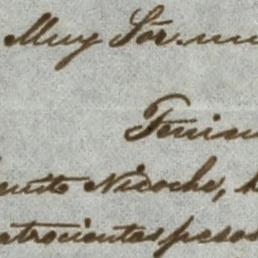 Muy Sor. mi
Tenien
ente Nicochc, h
atrocientos pesos